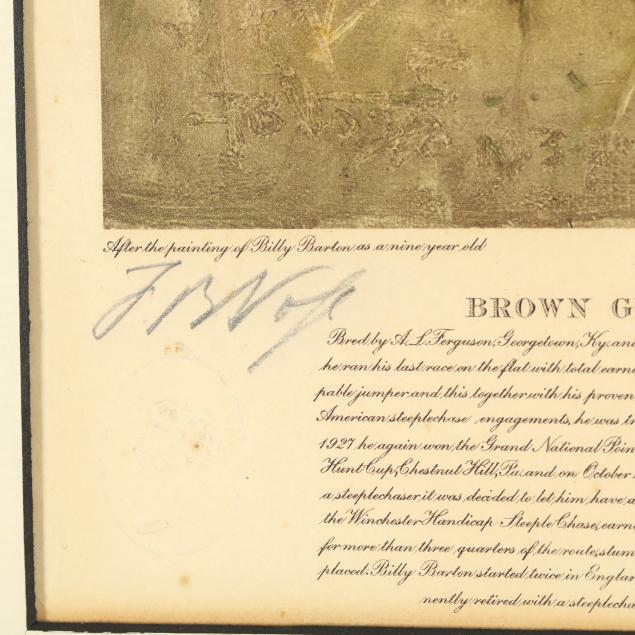 After the painting of Billy Barton as a nine year old
F. B. Voss
BROWN G
Bred by A. L. Ferguson, Georgetown, Ky. and
he ran his last race on the flat with total earn
pable jumper and this together with his proven
American steeplechase engagements, he was tr
1927 he again won the Grand National Poin
Hunt Cup, Chestnut Hill, Pa. and on October
a steeplechaser it was decided to let him have a
the Winchester Handicap Steeple Chase, earn
for more than three quarters of the route, stum
placed. Billy Barton started twice in Englan
nently retired with a steeplecha